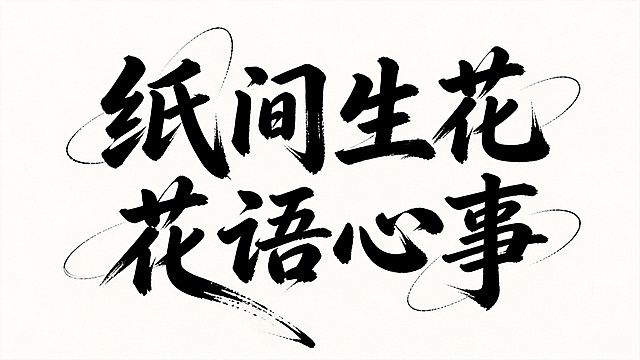 纸间生花
花语心事